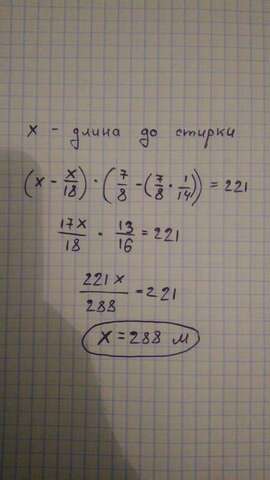 x - длина до стирки
(x - x/18) · (7/8 - (7/8 · 1/14)) = 221
17x/18 · 13/16 = 221
221x/288 = 221
x = 288 м